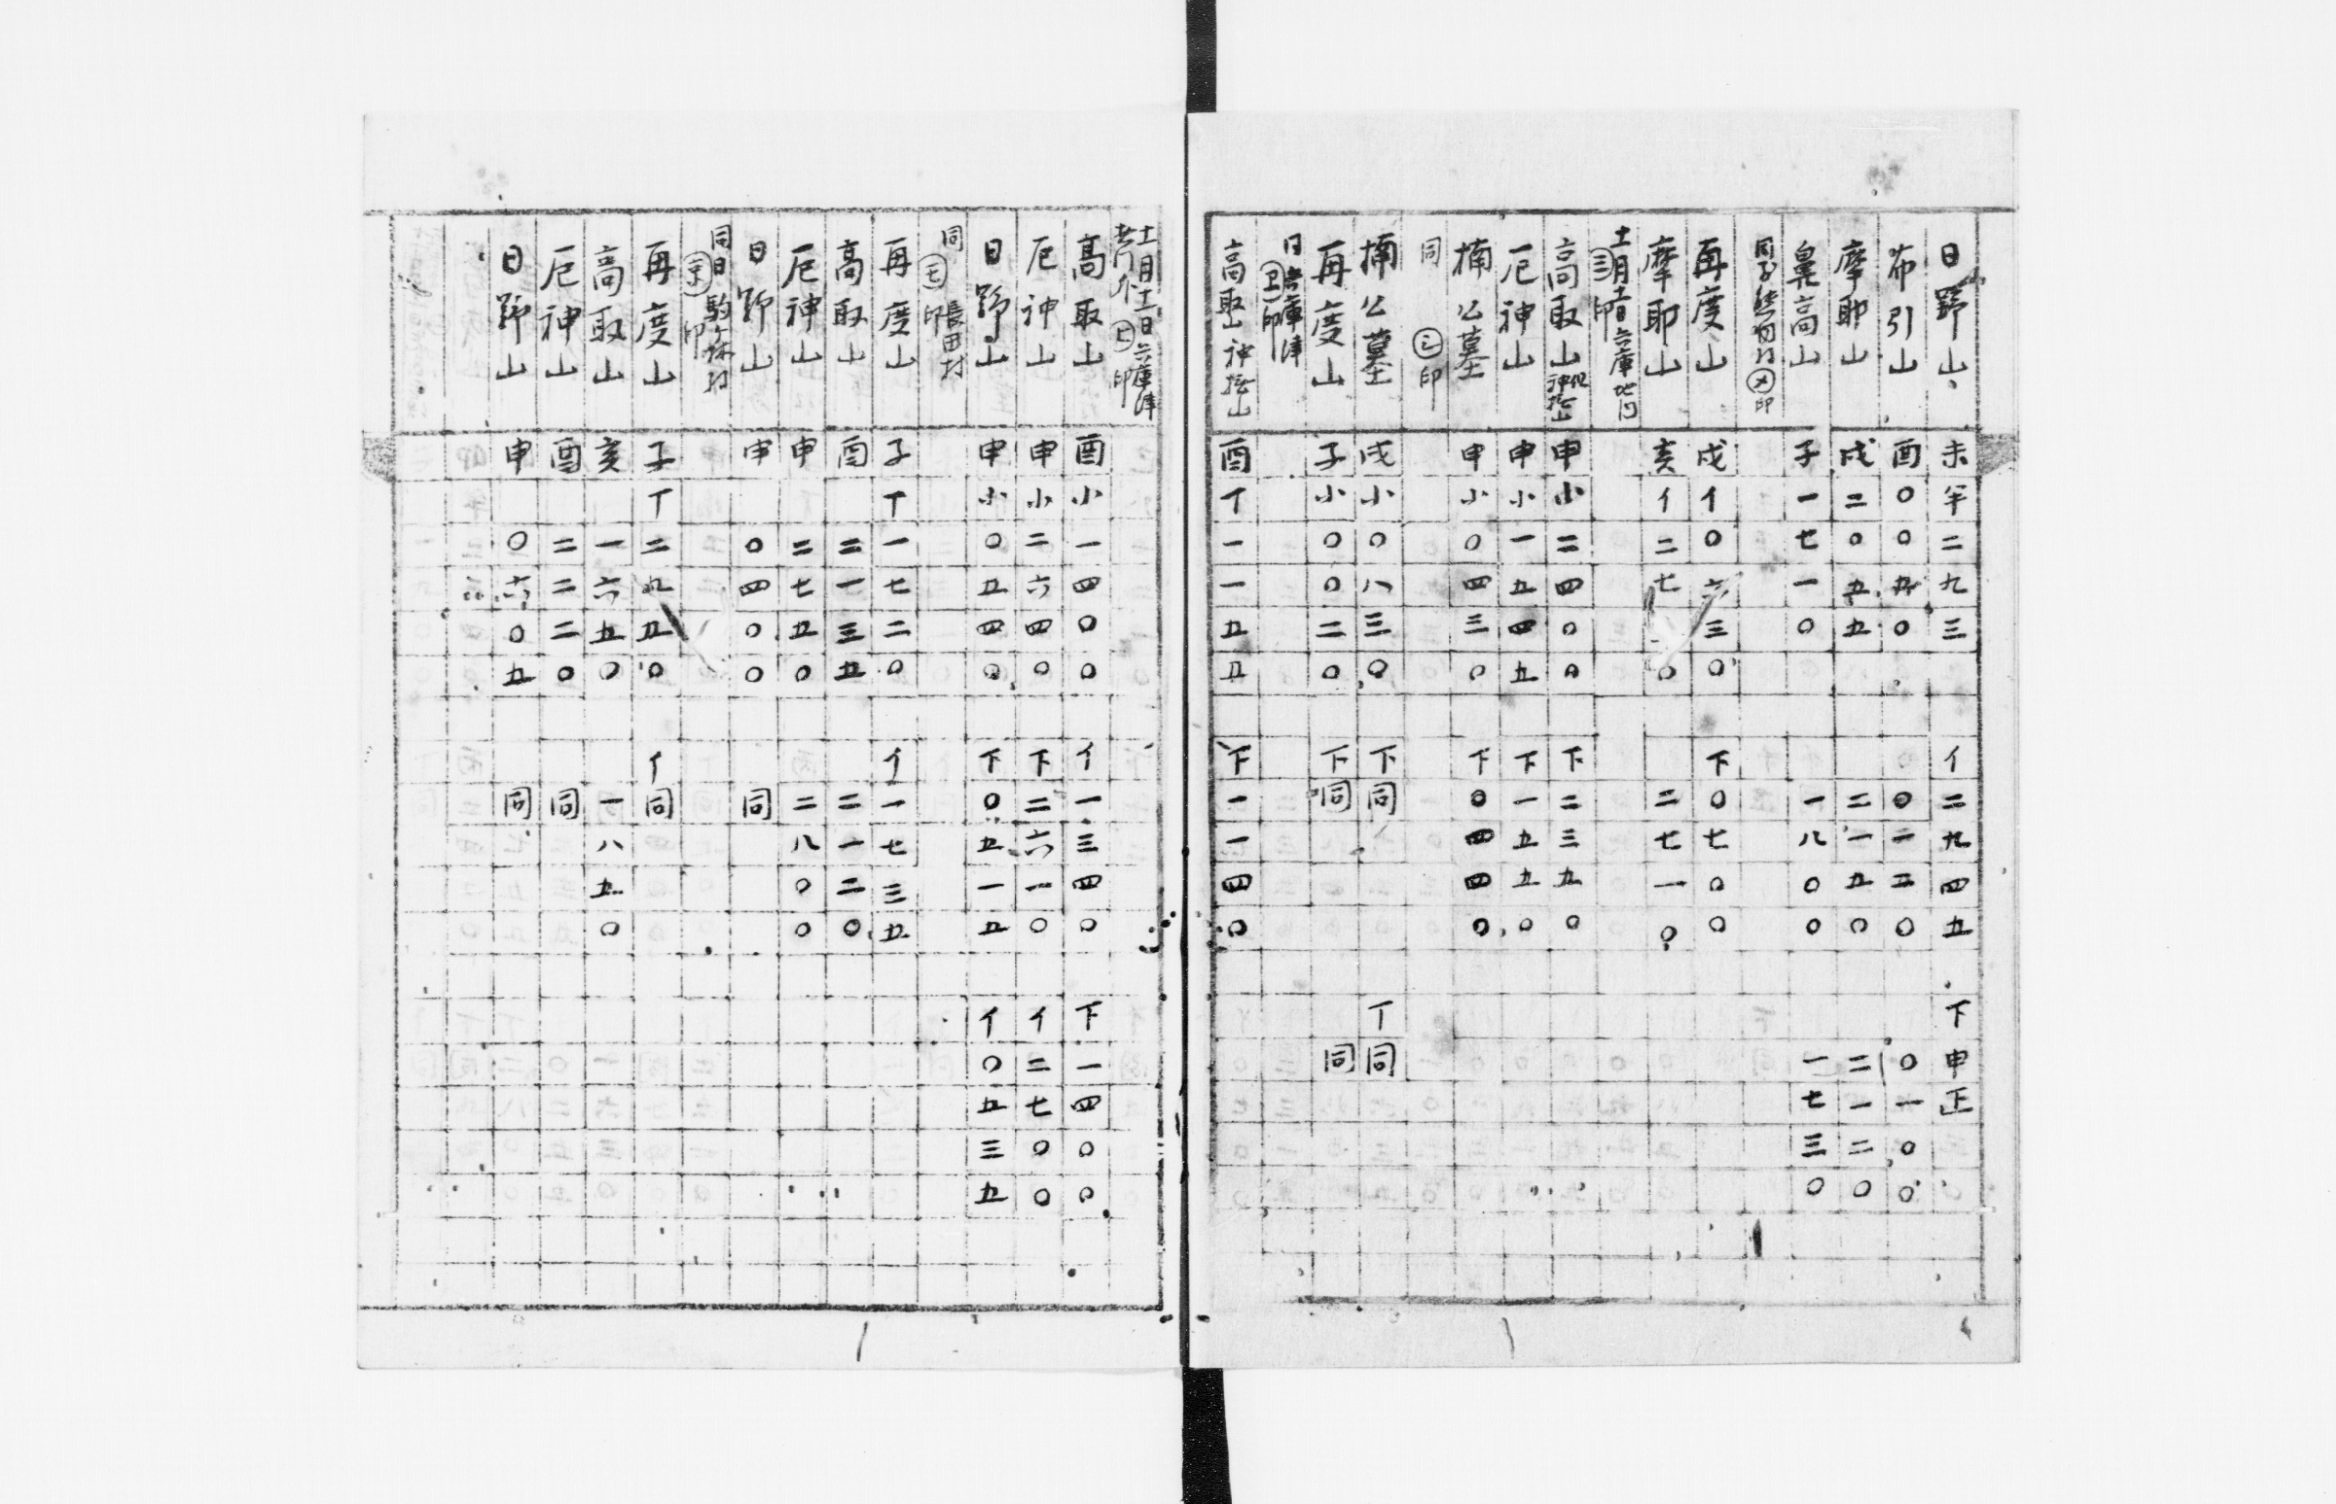 日野山 未 半 二九三 イ 二九四五 下 申正
布引山 酉 〇〇五〇 〇一二〇 〇一〇〇
摩耶山 戌 二〇五五 二一五〇 二一二〇
鼻高山 子 一七一〇 一八〇〇 一七三〇
㋱印
再度山 戌 イ 〇六三〇 下 〇七〇〇
摩耶山 亥 イ 二七 〇 二七一〇
十一月 兵庫
高取山 申 小 二四〇〇 下 二三五〇
厄神山 申 小 一五四五 下 一五五〇
楠公墓 申 小 〇四三〇 下 〇四四〇
同 ㋛印
楠公墓 戌 小 〇八三〇 下 同 丁 同
再度山 子 小 〇〇二〇 下 同 同
同 兵庫津 印
高取山 神 山 酉 丁 一一五五 下 一一四〇
十一月十一日 兵庫津 ㋪印
高取山 酉 小 一四〇〇 イ 一三四〇 下 一四〇〇
厄神山 申 小 二六四〇 下 二六一〇 イ 二七〇〇
日野山 申 小 〇五四〇 下 〇五一五 イ 〇五三五
同 長田村 ㋲印
再度山 子 丁 一七二〇 イ 一七三五
高取山 酉 二一三五 二一二〇
厄神山 申 二七五〇 二八〇〇
日野山 申 〇四〇〇 同
同日 駒ヶ林村 印
再度山 子 丁 二九五〇 イ 同
高取山 亥 一六五〇 一八五〇
厄神山 酉 二二二〇 同
日野山 申 〇六〇五 同